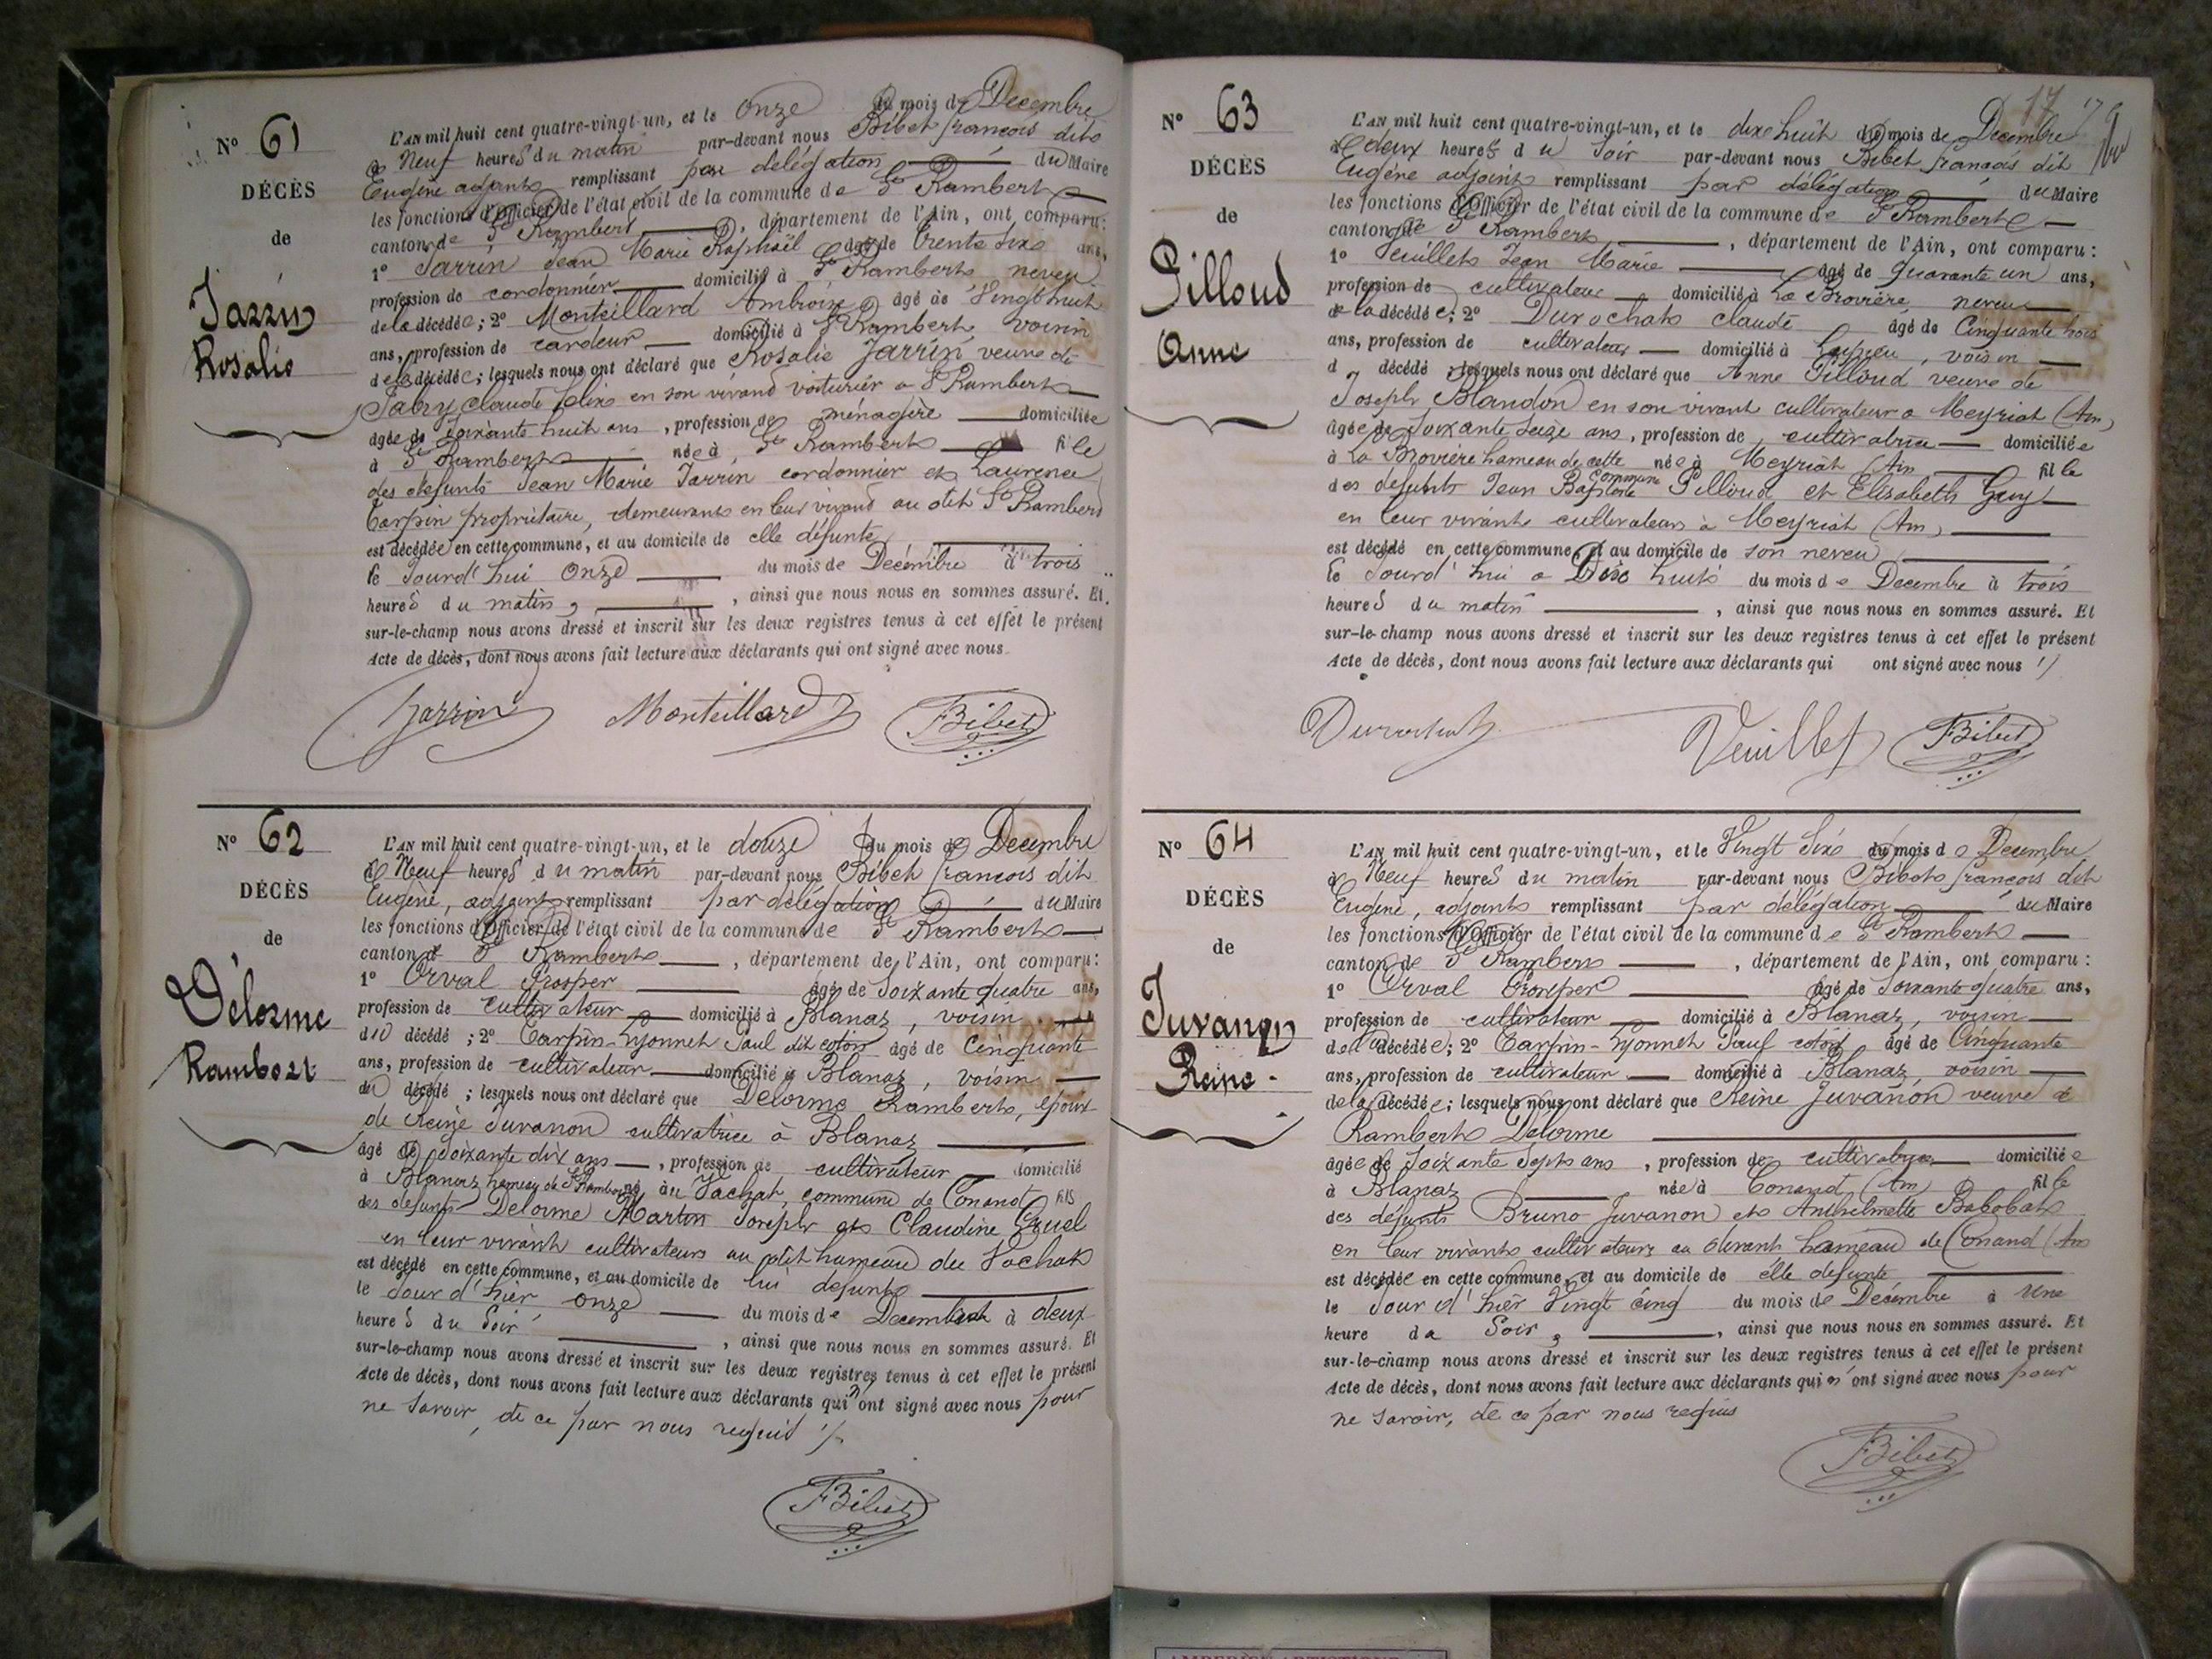 N° 61
DÉCÈS
de
Jarrin
Rosalie
L'AN mil huit cent quatre-vingt-un, et le onze du mois de Decembre
à Neuf heures du matin par-devant nous Bibet francois dit
Eugène adjoint remplissant par délégation du Maire
les fonctions d'Officier de l'état civil de la commune de St Rambert
canton de St Rambert, département de l'Ain, ont comparu:
1° Jarrin Jean Marie Raphaël âgé de trente six ans,
profession de cordonnier domicilié à St Rambert neveu
de la décédée; 2° Monteillard Ambroise âgé de Vingt huit
ans, profession de cardeur domicilié à St Rambert voisin
de la décédée; lesquels nous ont déclaré que Rosalie Jarrin veuve de
Fabry claude felix en son vivant voiturier a St Rambert
âgée de soixante huit ans, profession de ménagère domiciliée
à St Rambert née à St Rambert fille
des defunts Jean Marie Jarrin cordonnier et Laurence
Carpin propriétaire, demeurants en leur vivant au dit St Rambert
est décédée en cette commune, et au domicile de elle défunte
le Jourd'hui onze du mois de Decembre à trois
heures du matin, ainsi que nous nous en sommes assuré. Et
sur-le-champ nous avons dressé et inscrit sur les deux registres tenus à cet effet le présent
Acte de décès, dont nous avons fait lecture aux déclarants qui ont signé avec nous.
Jarrin Monteillard FBibet
N° 62
DÉCÈS
de
Délorme
Rambert
L'AN mil huit cent quatre-vingt-un, et le douze du mois de Decembre
à Neuf heures du matin par-devant nous Bibet francois dit
Eugène, adjoint remplissant par délégation du Maire
les fonctions d'Officier de l'état civil de la commune de St Rambert
canton de St Rambert, département de l'Ain, ont comparu:
1° Orval Prosper âgé de soixante quatre ans,
profession de cultivateur domicilié à Blanaz, voisin
du décédé; 2° Carpin-Lyonnet Paul dit coton âgé de Cinquante
ans, profession de cultivateur domicilié à Blanaz, voisin
du décédé; lesquels nous ont déclaré que Delorme Rambert, époux
de Reine Juvanon cultivatrice à Blanaz
âgé de soixante dix ans, profession de cultivateur domicilié
à Blanaz hameau de St Rambert né au Vachat, commune de Conand fils
des defunts Delorme Martin Joseph et Claudine Gruel
en leur vivant cultivateurs au dit hameau du Vachat
est décédé en cette commune, et au domicile de lui defunt
le Jour d'hier onze du mois de Decembre à deux
heures du soir, ainsi que nous nous en sommes assuré. Et
sur-le-champ nous avons dressé et inscrit sur les deux registres tenus à cet effet le présent
Acte de décès, dont nous avons fait lecture aux déclarants qui n'ont signé avec nous pour
ne savoir, de ce par nous requis
FBibet
17
N° 63
DÉCÈS
de
Pilloud
Anne
L'AN mil huit cent quatre-vingt-un, et le dix huit du mois de Decembre
à deux heures du soir par-devant nous Bibet francois dit
Eugène adjoint remplissant par délégation du Maire
les fonctions d'Officier de l'état civil de la commune de St Rambert
canton de St Rambert, département de l'Ain, ont comparu:
1° Veuillet Jean Marie âgé de quarante un ans,
profession de cultivateur domicilié à La Brovière, neveu
de la décédée; 2° Durochat claude âgé de Cinquante trois
ans, profession de cultivateur domicilié à voisin
d décédé; lesquels nous ont déclaré que Anne Pilloud veuve de
Joseph Blandon en son vivant cultivateur a Meyriat (Ain)
âgée de soixante seize ans, profession de cultivatrice domiciliée
à La Brovière hameau de cette commune née à Meyriat (Ain) fille
des defunts Jean Baptiste Pilloud et Elisabeth Guy
en leur vivant cultivateurs à Meyriat (Ain)
est décédé en cette commune, et au domicile de son neveu
le Jourd'hui a Dix huit du mois de Decembre à trois
heures du matin, ainsi que nous nous en sommes assuré. Et
sur-le-champ nous avons dressé et inscrit sur les deux registres tenus à cet effet le présent
Acte de décès, dont nous avons fait lecture aux déclarants qui ont signé avec nous
Durochat Veuillet FBibet
N° 64
DÉCÈS
de
Juvanon
Reine
L'AN mil huit cent quatre-vingt-un, et le Vingt six du mois de Decembre
à Neuf heures du matin par-devant nous Bibet francois dit
Eugène, adjoint remplissant par délégation du Maire
les fonctions d'Officier de l'état civil de la commune de St Rambert
canton de St Rambert, département de l'Ain, ont comparu:
1° Orval Prosper âgé de soixante quatre ans,
profession de cultivateur domicilié à Blanaz, voisin
de la décédée; 2° Carpin-Lyonnet Paul coton âgé de Cinquante
ans, profession de cultivateur domicilié à Blanaz, voisin
de la décédée; lesquels nous ont déclaré que Reine Juvanon veuve de
Rambert Delorme
âgée de soixante sept ans, profession de cultivatrice domiciliée
à Blanaz née à Conand (Ain) fille
des défunts Bruno Juvanon et Anthelmette Babobat
en leur vivant cultivateurs au hameau de Conand (Ain
est décédée en cette commune, et au domicile de elle defunte
le Jour d'hier Vingt cinq du mois de Decembre à une
heure du soir, ainsi que nous nous en sommes assuré. Et
sur-le-champ nous avons dressé et inscrit sur les deux registres tenus à cet effet le présent
Acte de décès, dont nous avons fait lecture aux déclarants qui n'ont signé avec nous pour
ne savoir, de ce par nous requis
FBibet